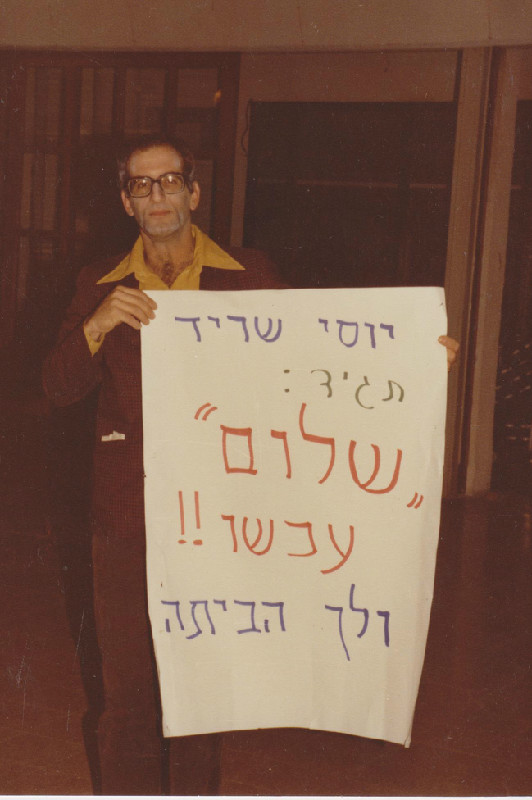 יוסי שריד
תגיד:
"שלום"
עכשו!!
ולך הביתה